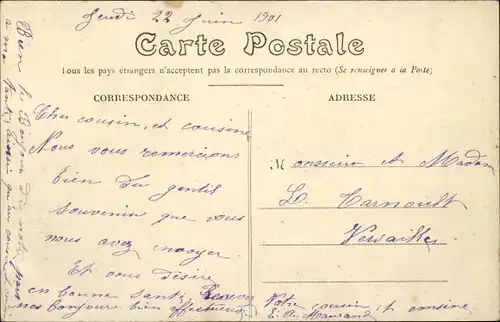 Jeudi 22 Juin 1901
Carte Postale
Tous les pays étrangers n'acceptent pas la correspondance au recto (Se renseigner à la Poste)
CORRESPONDANCE
ADRESSE
Cher cousin, et cousine
Nous vous remercions
bien du gentil
souvenir que vous
nous avez envoyer
Et vous désire
en bonne santé Recevez
nos bonjour bien affectueux
Votre cousin et cousine
E. A.
Monsieur et Madam
Versailles
Bien le Bonjour de notre part
a me